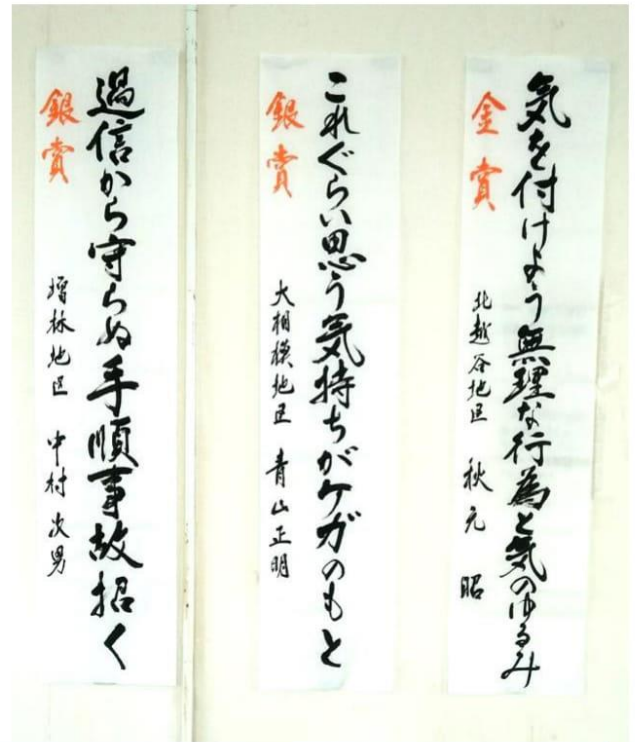 気を付けよう無理な行為と気のゆるみ
金賞
北越谷地区 秋元 昭
これぐらい思う気持ちがケガのもと
銀賞
大相模地区 青山正明
過信から守らぬ手順事故招く
銀賞
増林地区 中村次男